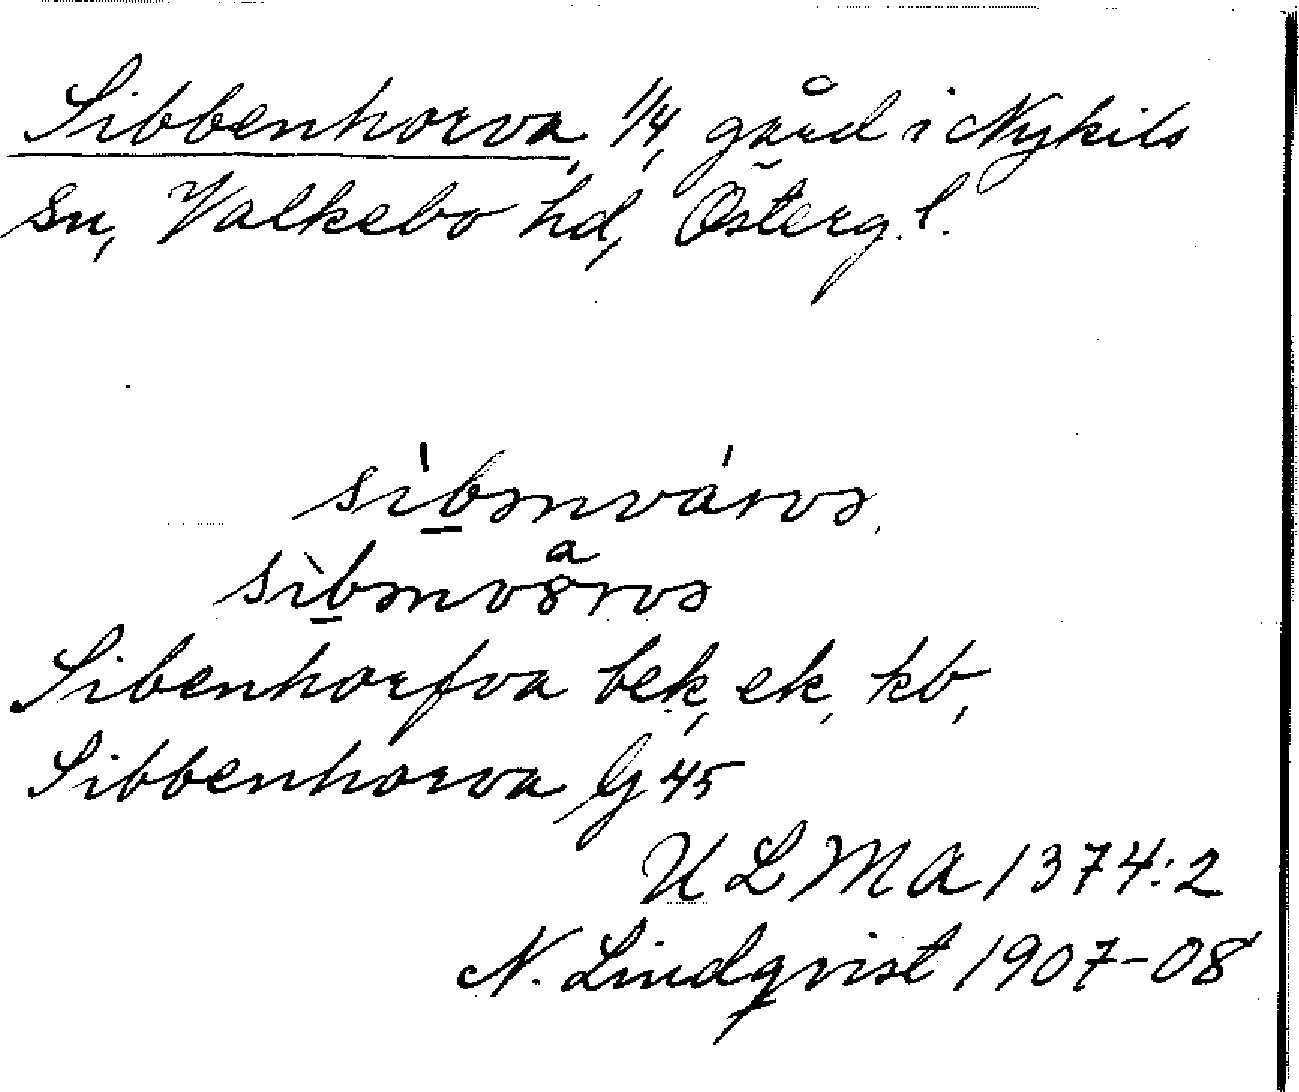 Sibbenhorva, 1/4, gård i Nykils
sn, Valkebo hd, Österg.l.
sìbənvárvə.
sìbənvarvə
Sibenhorfva bek, ek, kb,
Sibbenhorva G 45
ULMA 1374:2
N. Lindqvist 1907-08